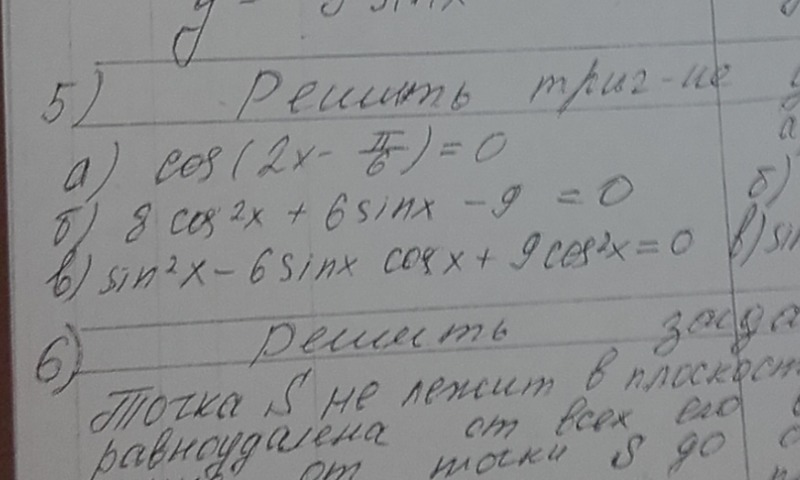 5) Решить триг-ие
а) cos(2x - π/6) = 0
б) 8 cos²x + 6 sinx - 9 = 0
в) sin²x - 6 sinx cosx + 9 cos²x = 0
а
б)
в) sin
6) Решить зада
Точка S не лежит в плоскост
равноудалена от всех его
от точки S до